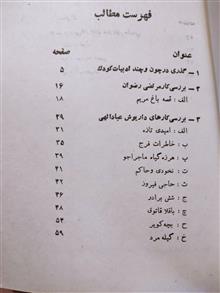 فهرست مطالب
عنوان صفحه
۱ - گذری در چون و چند ادبیات کودک ۵
۲ - بررسی کار مرتضی رضوان ۱۶
الف : قصه باغ مریم ۱۸
۳ - بررسی کارهای داریوش عباداللهی ۲۹
الف : امیدی تازه ۳۱
ب : خاطرات فرج ۳۵
پ : هرزه گیاه ماجراجو ۳۹
ت : نخودی و حاکم ۴۱
ث : حاجی فیروز ۴۲
ج : شش برادر ۴۶
چ : باقلا قاتوق ۴۸
ح : بچه کویر ۵۴
خ : گیله مرد ۵۹